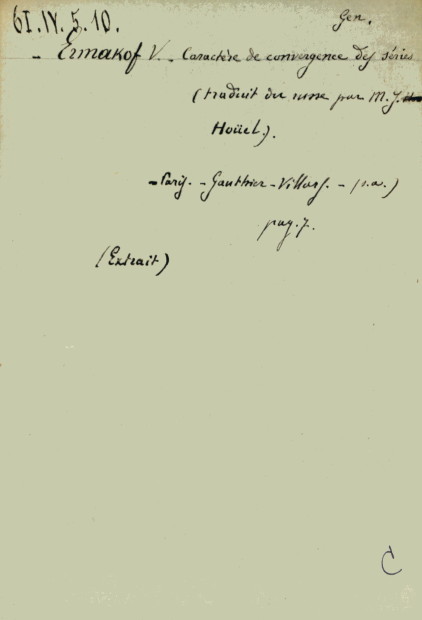 61.IV.5.10. Gen.
- Ermakof V. - Caractère de convergence des séries
(traduit du russe par M. J.
Hoüel.).
- Paris. - Gauthier-Villars. - (s.a.)
pag. 7.
(Extrait)
C